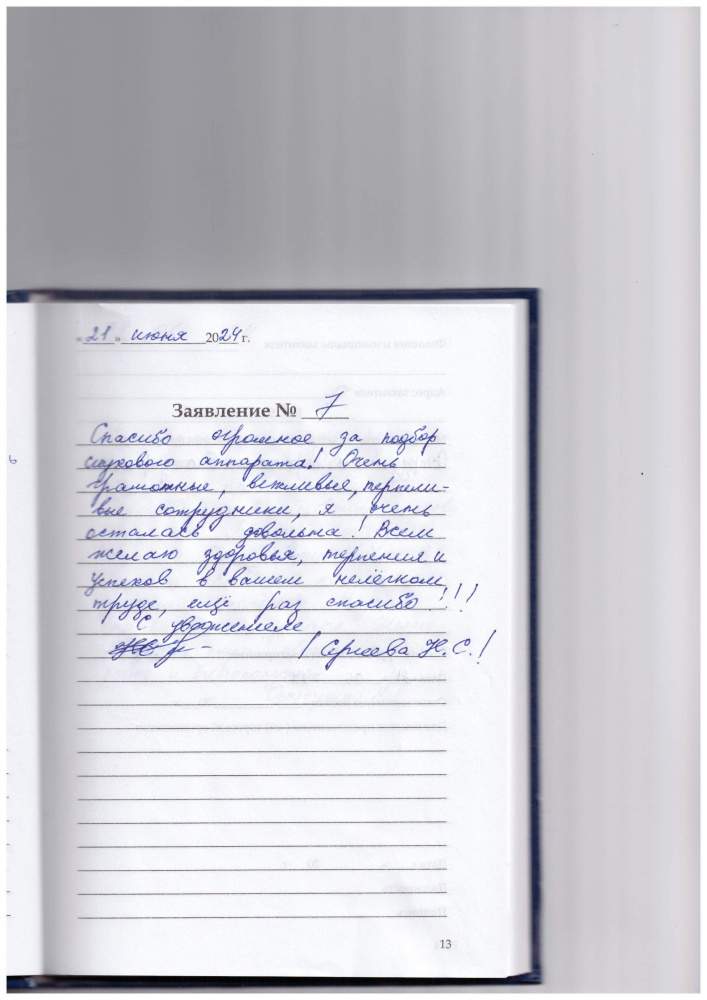 « 21 » июня 2024 г.
Заявление № 7
Спасибо огромное за подбор
слухового аппарата! Очень
грамотные, вежливые, терпели-
вые сотрудники, я очень
осталась довольна! Всем
желаю здоровья, терпения и
успехов в вашем нелёгком
труде, ещё раз спасибо!!!
С уважением
/ Сергеева Н.С. /
13